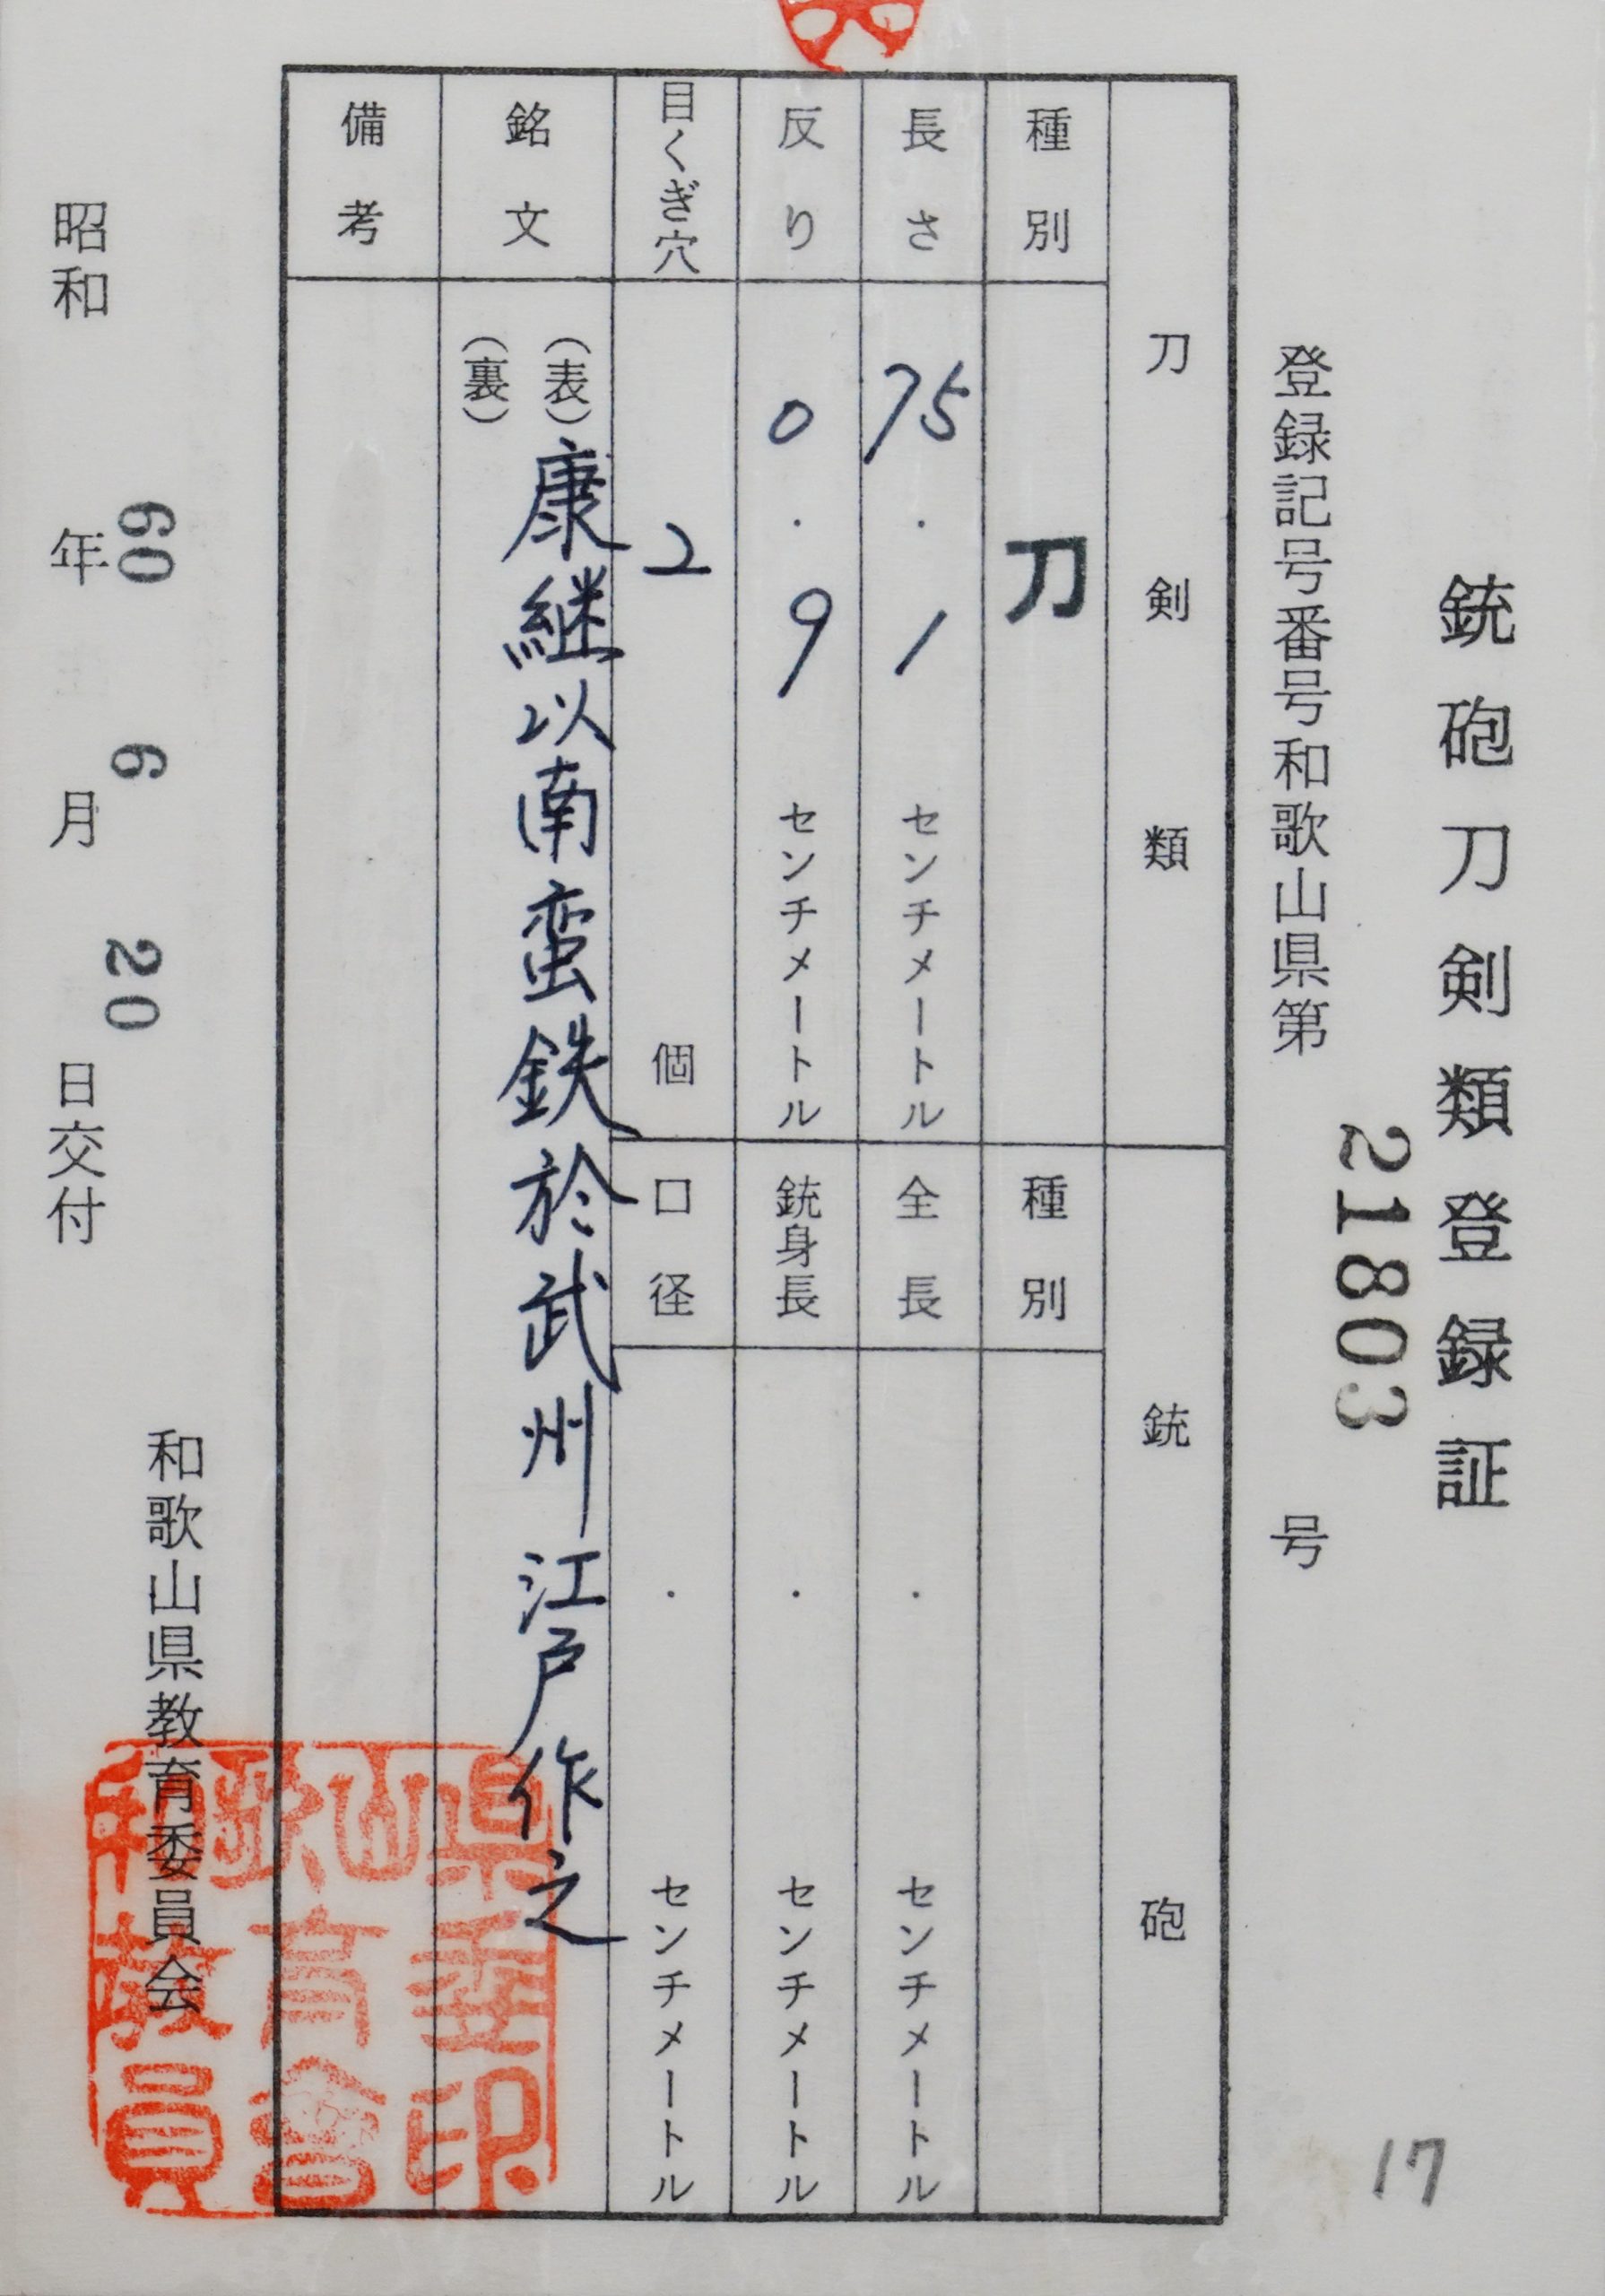 銃砲刀剣類登録証
登録記号番号和歌山県第 21803 号
刀剣類
銃砲
種別 刀
種別
長さ 75.1 センチメートル
全長 . センチメートル
反り 0.9 センチメートル
銃身長 . センチメートル
目くぎ穴 2 個
口径 . センチメートル
銘文 (表) 康継以南蛮鉄於武州江戸作之
(裏)
備考
和歌山県教育委員会
昭和 60 年 6 月 20 日交付
和歌山県
教育委
員會印
17